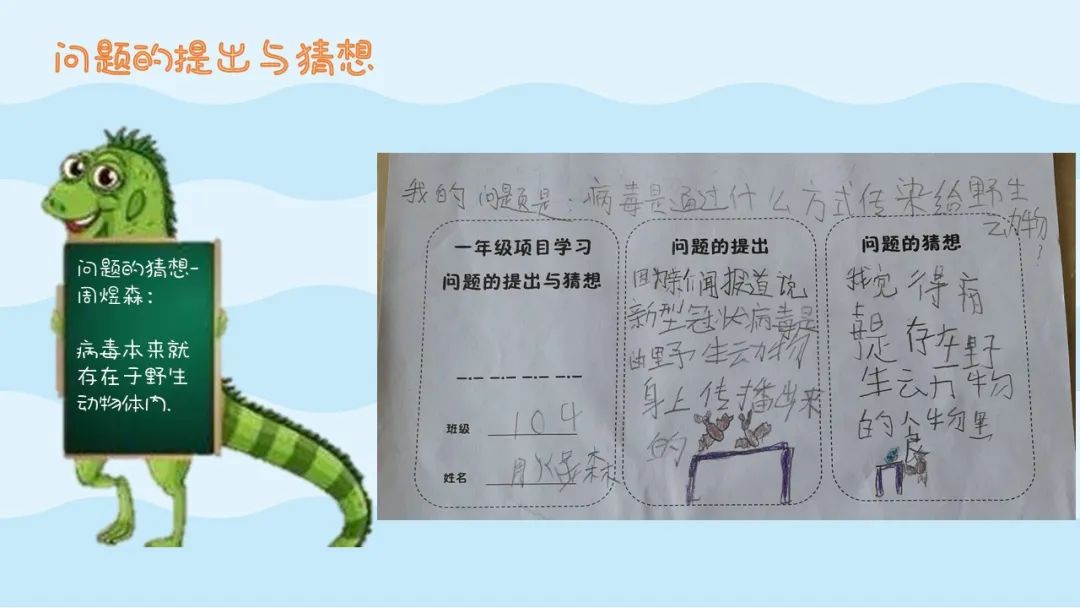 问题的提出与猜想
问题的猜想-
周煜森：
病毒本来就
存在于野生
动物体内.
我的问题是：病毒是通过什么方式传染给野生
动物？
一年级项目学习
问题的提出与猜想
班级 104
姓名 周煜森
问题的提出
因为新闻报道说
新型冠状病毒是
由野生动物
身上传播出来
的
问题的猜想
我觉得病
毒是存在野
生动物
的食物里